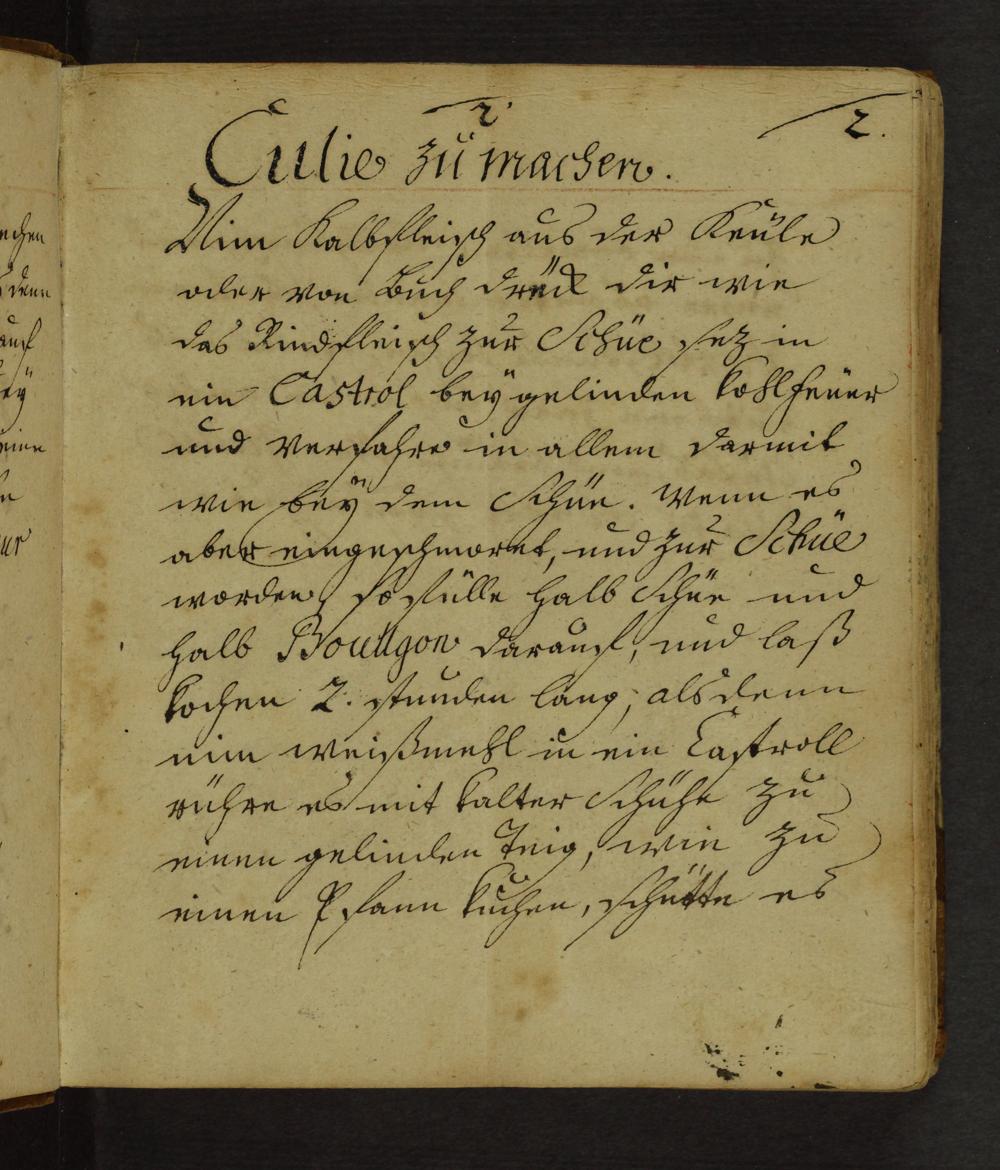 2.
2.
Culie zu machen.
Nim Kalbfleisch aus der Keüle
oder von Buch drück dir wie
das Rindfleisch zur Schüe sez in
ein Castrol beÿ gelinden kohlfeüer
und verfahre in allem darmit
wie beÿ dem Schüe. Wenn es
aber eingeschmoret, und zur Schüe
worden, so fülle halb Schüe und
halb Boullgon darauf, und laß
kochen 2. stunden lang, alsdenn
nim weißmehl in ein Castroll
rühre es mit kalter Schühe zu
einen gelinden Teig, wie zu
einen Pfann kuchen, schütte es
echen
denn
auf
eÿ
eine
ur